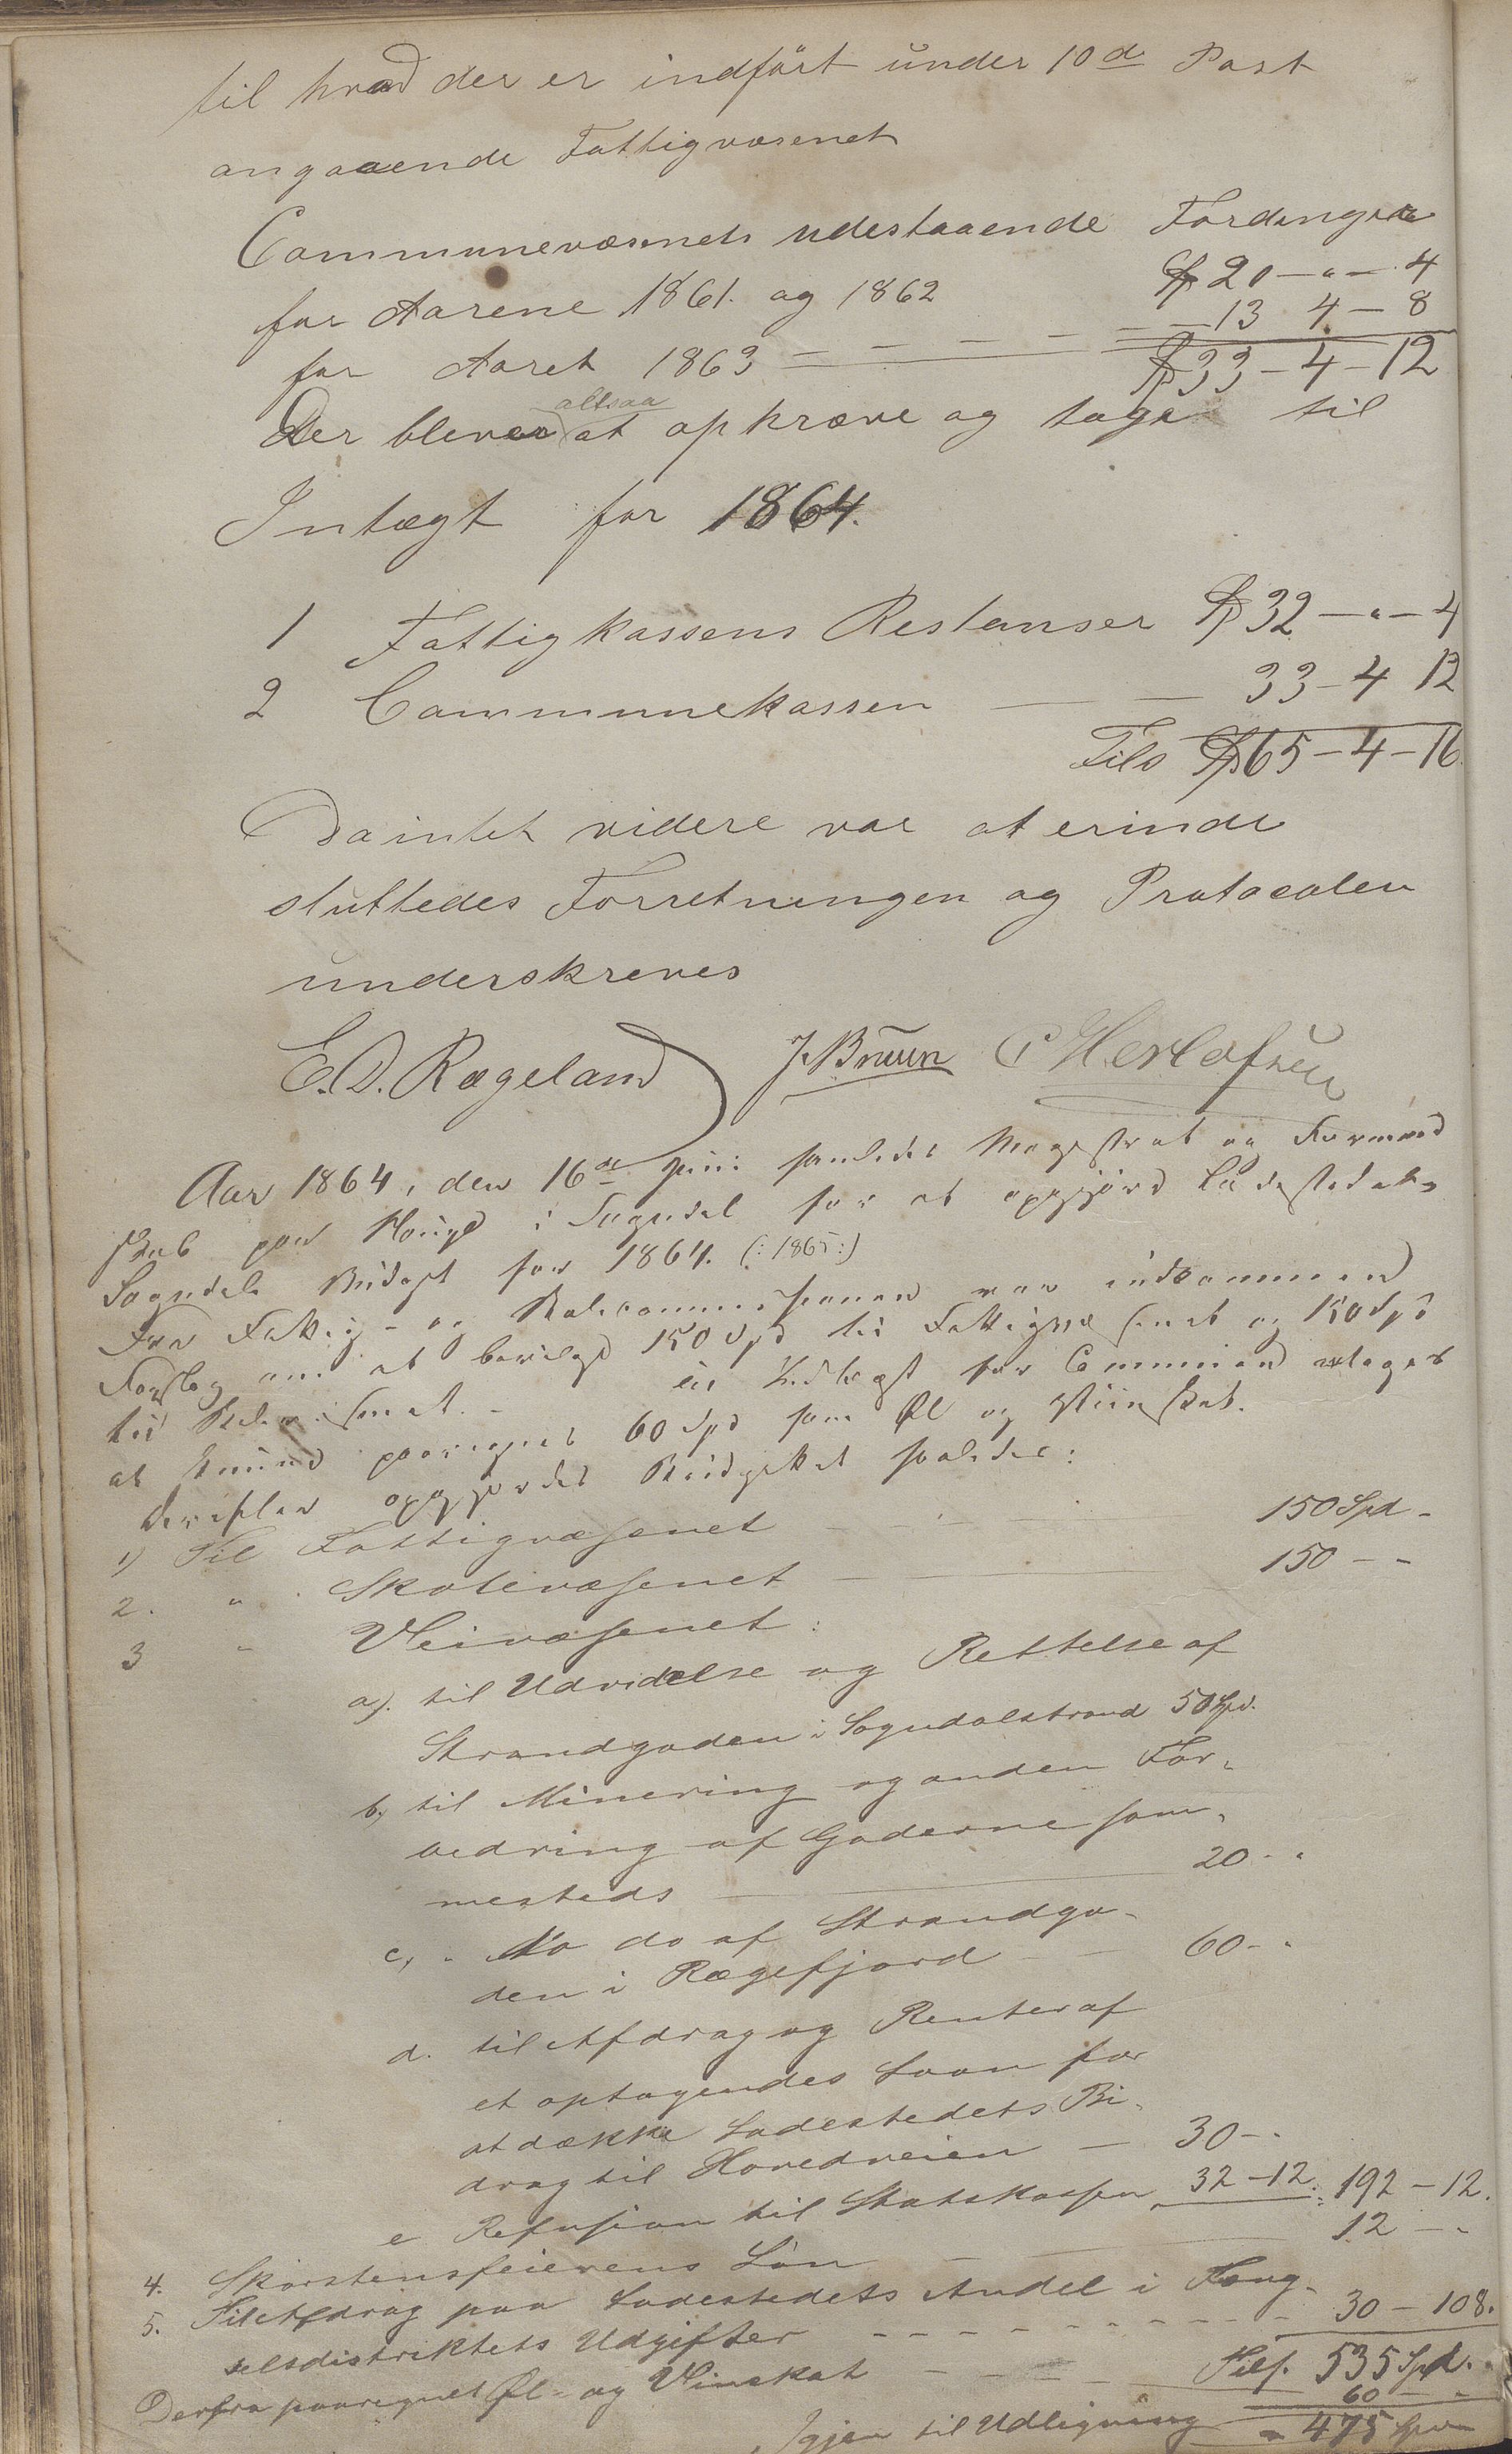 til hvad der er indført under 10de Post
angaaende Fattigvæsenet
Communevæsenets udestaaende Fordinger
for Aarene 1861. og 1862 Sp 20 — " — 4
for Aaret 1863 — — — — — 13 4 — 8
Sp 33 — 4 — 12
Der bliver altsaa at opkræve og tage til
Intægt for 1864.
1 Fattigkassens Restanser Sp 32 — " — 4
2 Communekassen — — 33 — 4 12
Tils Sp 65 — 4 — 16
Da intet videre var at erindre
sluttedes Forretningen og Protocolen
underskreves
E. D. Rægeland J. Bruun C Herlofsen
Aar 1864, den 16de Juni samledes Magistrat og Formand
skab paa Hauge i Sogndal for at opgjøre Ladestedet
Sogndals Budget for 1864. (: 1865 :)
Fra Fattig- og Skolecommissionen var indkommen
Forslag om at bevilge 150 Spd til Fattigvæsenet og 150 Spd
til Skolevæsenet. – til Indtægt for Communen antages
at kunne paaregnes 60 Spd som Øl og Viinskat.
Derefter opgjordes Budgettet saaledes:
1) Til Fattigvæsenet — — — 150 Spd -
2. " Skolevæsenet — — 150 - -
3 " Veivæsenet:
a). til Udvidelse og Rettelse af
Strandgaden i Sogndalstrand 50 Spd.
b, til Minering og anden For-
bedring af Gaderne sam-
mesteds — 20 - "
c, " Do do af Strandga-
den i Rægefjord — — 60 - "
d. til Afdrag og Renter af
et optagendes Laan for
at dække Ladestedets Bi-
drag til Hovedveien — 30 - "
e Refusion til Statskassen 32 - 12. 192 - 12.
4. Skorstensfeierens Løn — — 12 - "
5. Til Afdrag paa Ladestedets Andel i Fæng-
selsdistriktets Udgifter — — — — 30 - 108.
Tils. 535 Spd.
Derfra paaregnet Øl- og Vinskat — — — 60 - "
Igjen til Udligning - 475 Spd